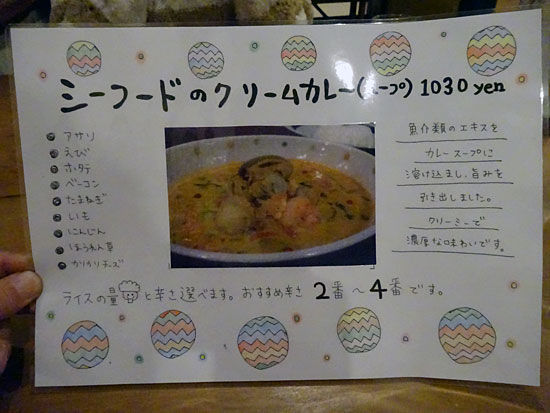 シーフードのクリームカレー(スープ) 1030 yen
アサリ
えび
ホタテ
ベーコン
たまねぎ
いも
にんじん
ほうれん草
カリカリチーズ
魚介類のエキスを
カレースープに
溶け込まし、旨みを
引き出しました。
クリーミーで
濃厚な味わいです。
ライスの量と辛さ選べます。おすすめ辛さ 2番〜4番です。